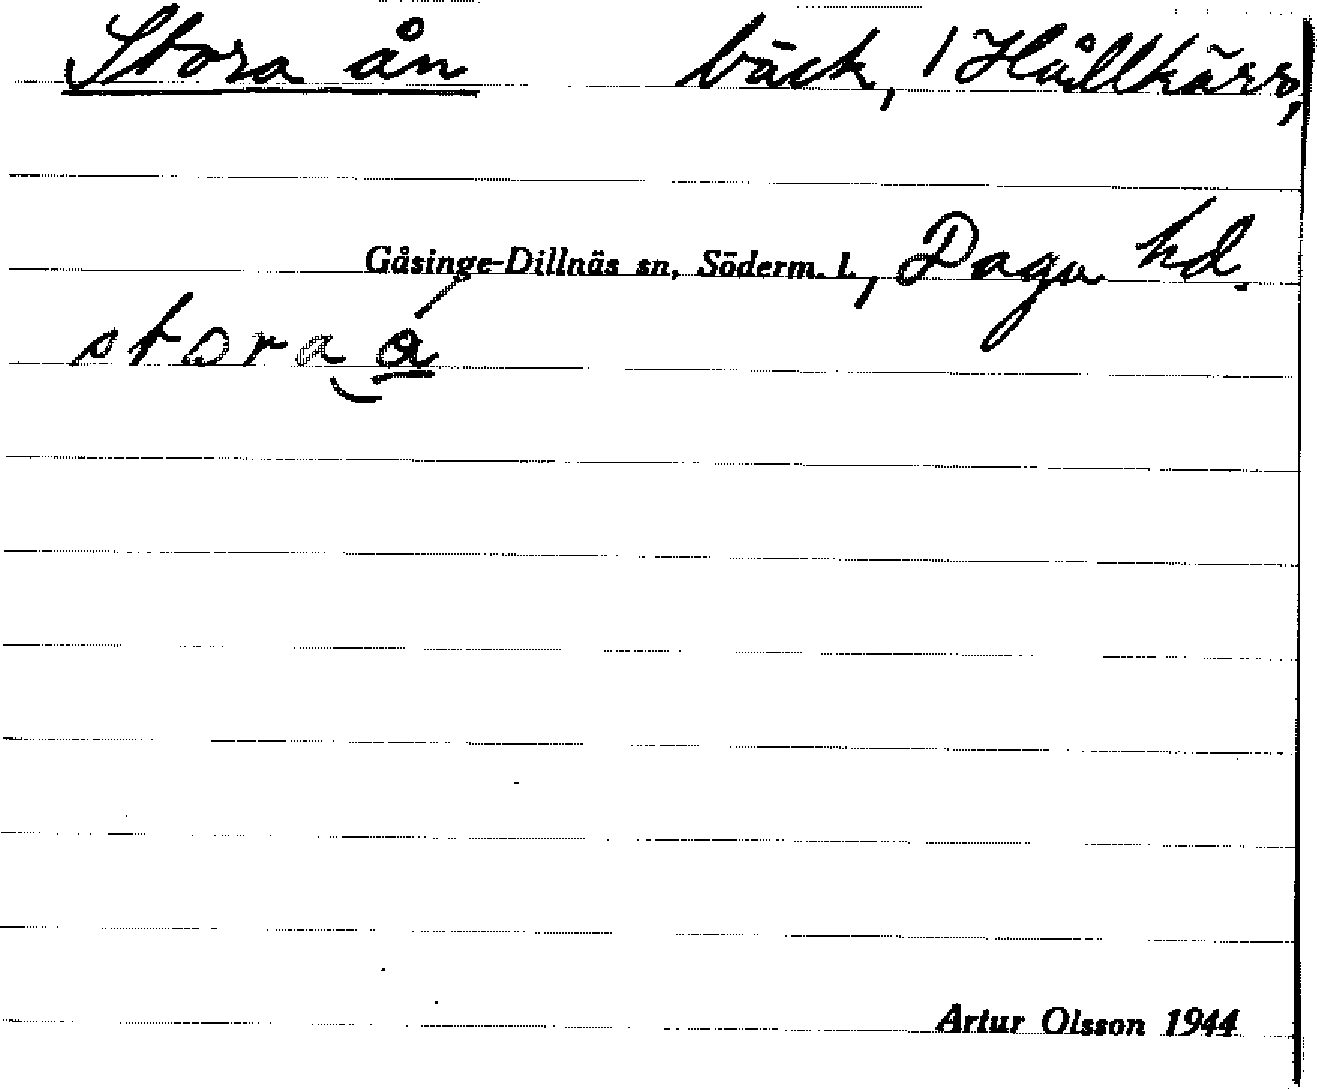 Stora ån bäck, / Hållkärr,
Gåsinge-Dillnäs sn, Söderm. l., Daga hd.
stora a
Artur Olsson 1944